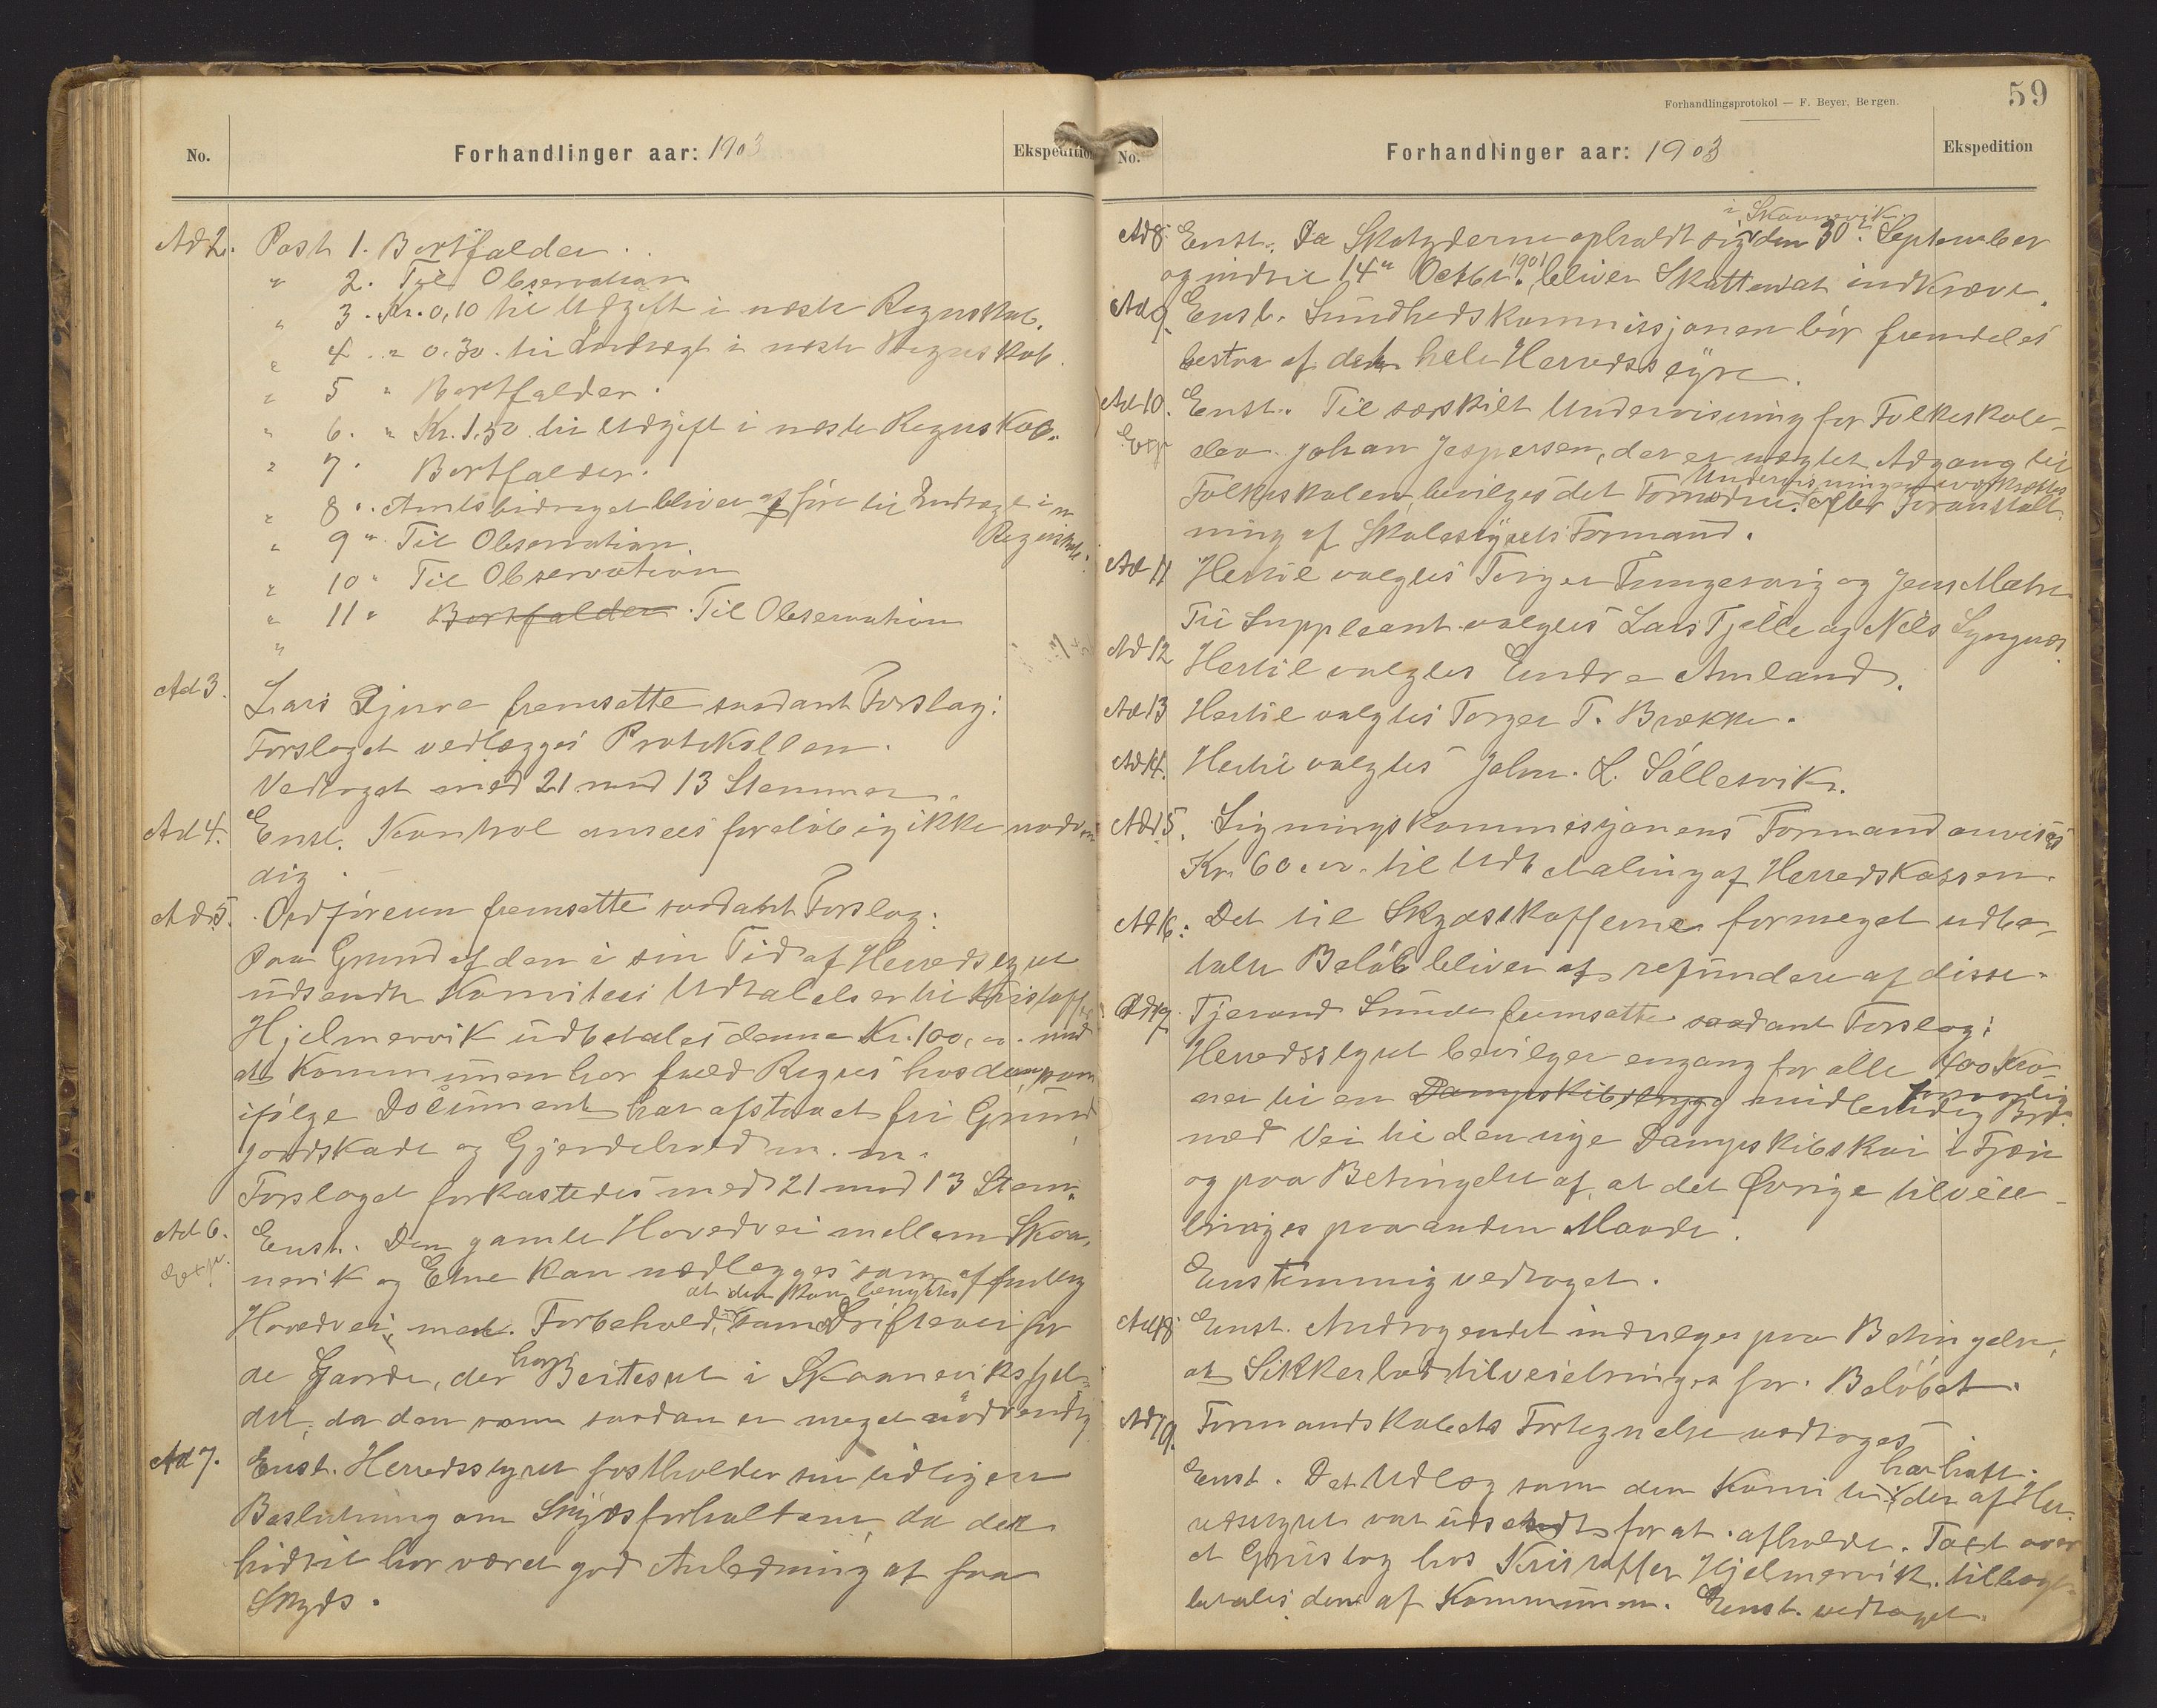 No.
Forhandlinger aar: 1903
Ekspedition
Ad 2. Post 1. Bortfalder.
" 2. Til Observation
" 3. Kr. 0,10 til Udgift i næste Regnskab.
" 4. " 0.30. til Indtægt i næste Regnskab.
" 5 " Bortfalder.
" 6. " Kr. 1.50 til Udgift i næste Regnskab.
" 7. Bortfalder.
" 8. Amtsbidraget bliver at føre til Indtægt i n
Regnskab.
" 9 " Til Observation.
" 10 " Til Observation
" 11 " Bortfalder Til Observation
"
Ad 3. Lars Djuve fremsatte saadant Forslag:
Forslaget vedlægges Protokollen.
Vedtaget med 21 mod 13 Stemmer.
Ad 4. Enst. Kontrol ansees foreløbig ikke nødven
dig.
Ad 5. Ordføreren fremsatte saadant Forslag:
Paa Grund af den i sin Tid af Herredsstyret
udsendte Komitees Udtalelser til Kristoffer
Hjelmervik udbetales denne Kr. 100,00. mod
at Kommunen har fuld Regres hos dem som
ifølge Document har afstaaet fri Grund
jordskade og Gjerdehold m. m.
Forslaget forkastedes med 21 mod 13 Stem.
Ad 6. Enst. Den gamle Hovedvei mellem Skaa-
Exp.
nevik og Etne kan nedlægges som offentlig
at den kan benyttes
Hovedvei, med Forbehold, som Driftevei for
de Gaarde, der har Beitesret i Skaaneviksfjel-
det, da den som saadan er meget nødvendig
Ad 7. Enst. Herredsstyret fastholder sin tidligere
Beslutning om Skydsforholdene, da der
hidtil har været god Anledning at faa
Skyds.
Forhandlingsprotokol — F. Beyer, Bergen.
59
No.
Forhandlinger aar: 1903
Ekspedition
i Skaanevik
Ad 8. Enst. Da Skatyderne opholdt sig den 30te September
og indtil 14de Octbr. 1901, bliver Skatten at indkræve.
Ad 9. Enst. Sundhedskommissjonen bør fremdeles
bestaa af det hele Herredsstyre.
Ad 10. Enst. Til særskilt Undervisning for Folkeskole-
Exp
elev Johan Jespersen, der er nægtet Adgang til
Undervisningen iværksættes
Folkeskolen, bevilges det Fornødne. efter Foranstalt-
ning af Skolestyrets Formand.
Ad 11 Hertil valgtes Torger Tungesvig og Jens Mæhre
Til Suppleant valgtes Lars Tjelle og Nils Lyngnæs.
Ad 12 Hertil valgtes Endre Amland.
Ad 13 Hertil valgtes Torger T. Brække.
Ad 14. Hertil valgtes Johs. L. Sållesvik.
Ad 15. Ligningskommissjonens Formand anvises
Kr. 60.00. til Udbetaling af Herredskassen.
Ad 16. Det til Skydsskafferne formeget udbe-
talte Beløb bliver at refundere af disse.
Ad 17. Tjerand Sunde fremsatte saadant Forslag:
Herredsstyret bevilger engang for alle 400 Kro-
ner til en Dampskibsbrygg midlertidig
nød Vei til den nye Dampskibskai i
og paa Betingelse af, at det Øvrige tilveie-
bringes paa anden Maade.
Enstemmig vedtaget.
Ad 18 Enst. Andragendet indvilges paa Betingelse,
at Sikkerhed tilveiebringes for Beløbet.
Ad 19. Formandskabets Fortegnelse vedtoges
har haft.
Enst. Det Udlæg som den Komite der af Her-
redsstyret var udsendt for at afholde Taxt over
et Grustag hos Kristoffer Hjelmervik. tilbage-
betales dem af Kommunen. Enst. vedtaget.